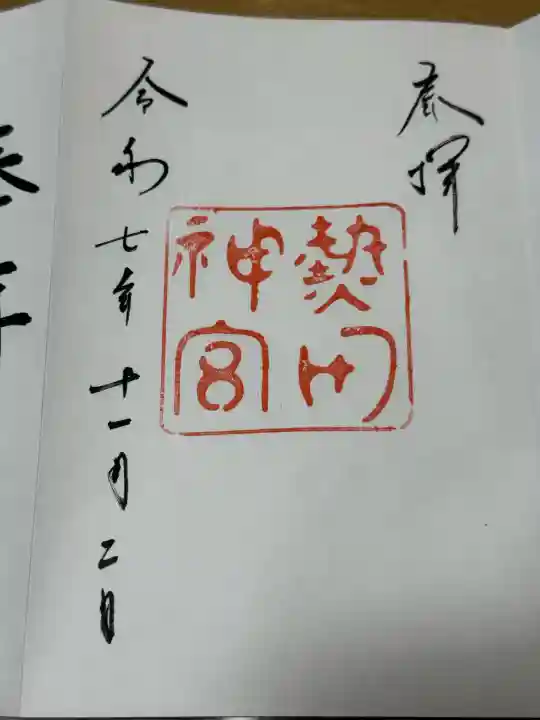 奉拝
熱田
神宮
令和七年十一月二日